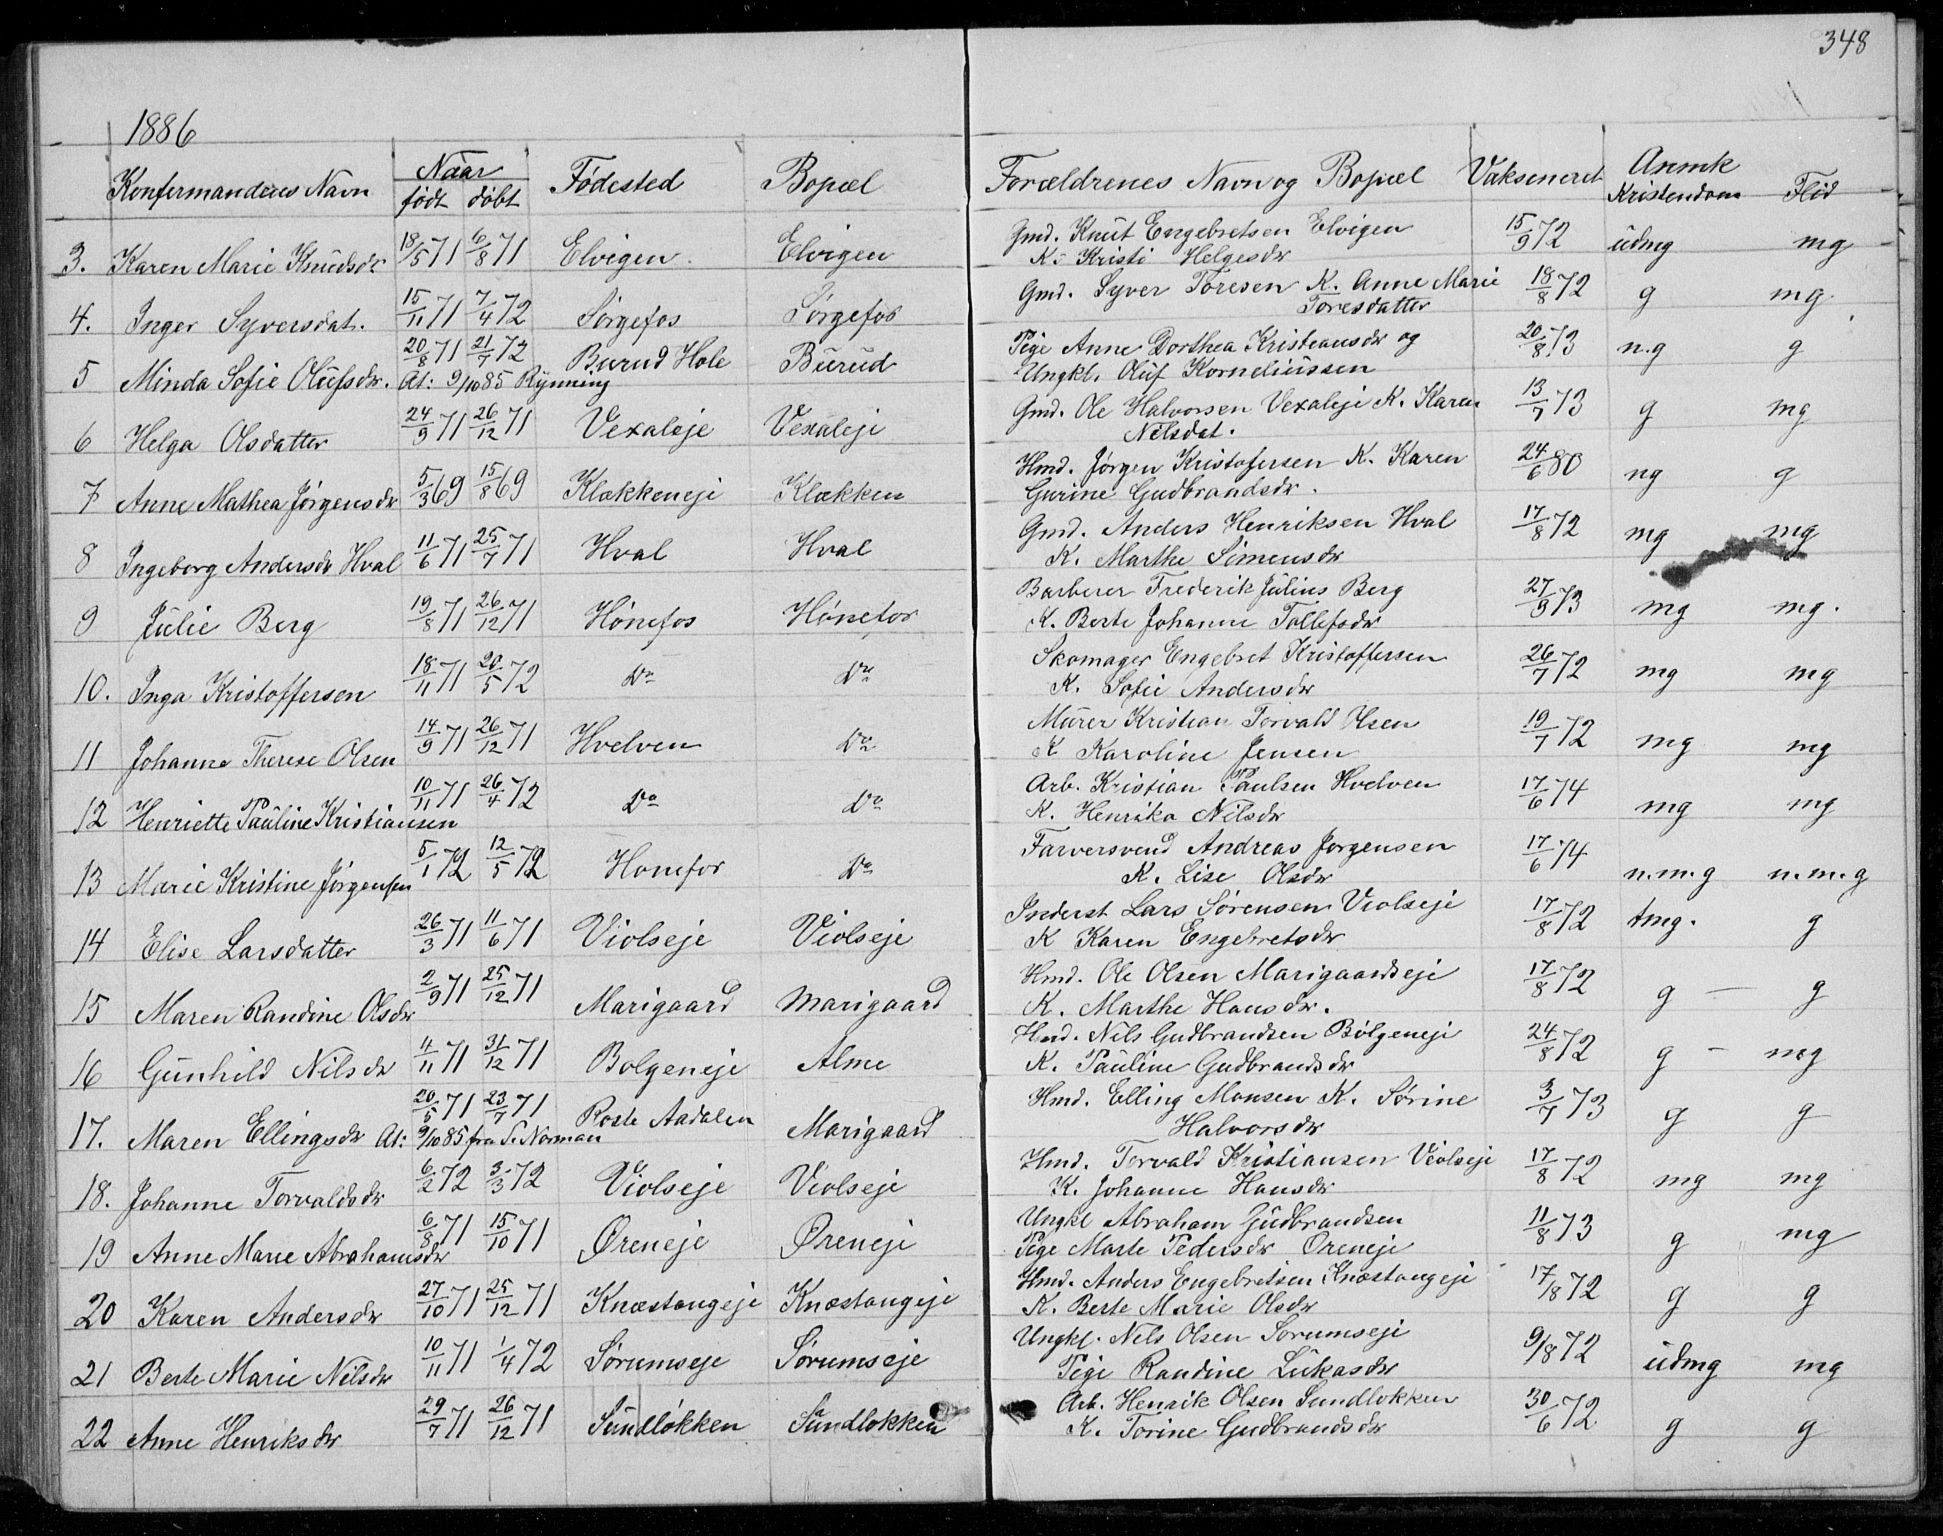 348
1886
Konfermandens Navn | Naar født | døbt | Fødested | Bopæl | Forældrenes Navn og Bopæl | Vaksineret | Anmk Kristendom | Flid
3. Karen Marie Knudsdr | 18/5 71 | 6/8 71 | Elvigen | Elvigen | Gmd. Knut Engebretsen Elvigen | 15/9 72 | üdmg | mg
K. Kristi Helgesdr
4. Inger Syversdat. | 15/11 71 | 7/4 72 | Sørgefos | Sørgefos | Gmd. Syver Toresen K. Anne Marie | 18/8 72 | g | mg.
Toresdatter
5 Minda Sofie Olüfsdr. | 20/8 71 | 21/7 72 | Burud Hole | Bürud | Pige Anne Dorthea Kristiansdr og | 20/8 73 | n.g | g
At: 9/10 85 Rÿnning | Ungkl. Olüf Korneliüssen
6 Helga Olsdatter | 24/9 71 | 26/12 71 | Vexaleje | Vexaleje | Gmd. Ole Halvorsen Vexaleje K. Karen | 13/7 73 | g | mg
Nilsdat.
7 Anne Mathea Jørgensdr | 5/3 69 | 15/8 69 | Klækkeneje | Klækken | Hmd. Jørgen Kristofersen K. Karen | 24/6 80 | ng | g
Gurine Gudbrandsdr.
8 Ingeborg Andersdr Hval | 11/6 71 | 25/7 71 | Hval | Hval | Gmd. Anders Henriksen Hval | 17/8 72 | mg | mg
K. Marthe Simensdr
9 Jülie Berg | 19/8 71 | 26/12 71 | Hønefos | Hønefos | Barberer Frederik Jülius Berg | 27/9 73 | mg | mg.
K. Berte Johanne Tollefsdr
10. Inga Kristoffersen | 18/11 71 | 20/5 72 | Do | Do | Skomager Engebret Kristoffersen | 26/7 72 | mg | mg
K. Sofie Andersdr
11 Johanne Therese Olsen | 14/9 71 | 26/12 71 | Hvelven | Do | Mürer Kristian Torvald Olsen | 19/7 72 | mg | mg
K Karoline Jensen
12 Henriette Paüline Kristiansen | 10/11 71 | 26/4 72 | Do | Do | Arb. Kristian Paulsen Hvelven | 17/6 74 | mg | mg
K. Henrika Nilsdr
13 Marie Kristine Jørgensen | 5/1 72 | 12/5 72 | Honefos | Do | Farversvend Andreas Jørgensen | 17/6 74 | n.m.g | n.m.g
K. Lise Olsdr
14 Elise Larsdatter | 26/3 71 | 11/6 71 | Violseje | Violseje | Inderst Lars Sørensen Violseje | 17/8 72 | tmg. | g
K Karen Engebretsdr
15 Maren Randine Olsdr | 2/9 71 | 25/12 71 | Marigaard | Marigaard | Hmd. Ole Olsen Marigaardseje | 17/8 72 | g — | g
K. Marthe Hansdr.
16 Günhild Nilsdr | 4/11 71 | 31/12 71 | Bolgeneje | Alme | Hmd. Nils Gudbrandsen Bølgeneje | 24/8 72 | g - | mg
K. Paüline Gudbrandsdr
17. Maren Ellingsdr | 20/5 71 | 23/7 71 | Roste Aadalen | Marigaard | Hmd. Elling Monsen K. Sørine | 3/7 73 | g | g
At: 9/10 85 fra S. Norman | Halvorsdr
18. Johanne Torvaldsdr | 6/2 72 | 3/3 72 | Violseje | Violseje | Hmd. Torvald Kristiansen Violseje | 17/8 72 | mg | mg
K. Johanne Hansdr
19 Anne Marie Abrahamsdr | 6/8 71 | 15/10 71 | Øreneje | Øreneje | Ungkl Abraham Güdbrandsen | 11/8 73 | g | mg
Pige Marte Pedersdr Øreneje
20 Karen Andersdr | 27/10 71 | 25/12 71 | Knæstangeje | Knæstangeje | Hmd. Anders Engebretsen Knæstangeje | 17/8 72 | g | g
K. Berte Marie Olsdr
21 Berte Marie Nilsdr | 10/11 71 | 1/4 72 | Sørumseje | Sørumseje | Ungkl. Nils Olsen Sørumseje | 9/8 72 | üdmg | mg
Pige Randine Lükasdr
22 Anne Henriksdr | 29/7 71 | 26/12 71 | Sündløkken | Sündløkken | Arb. Henrik Olsen Sundløkken | 30/6 72 | g | g
K. Torine Gudbrandsdr